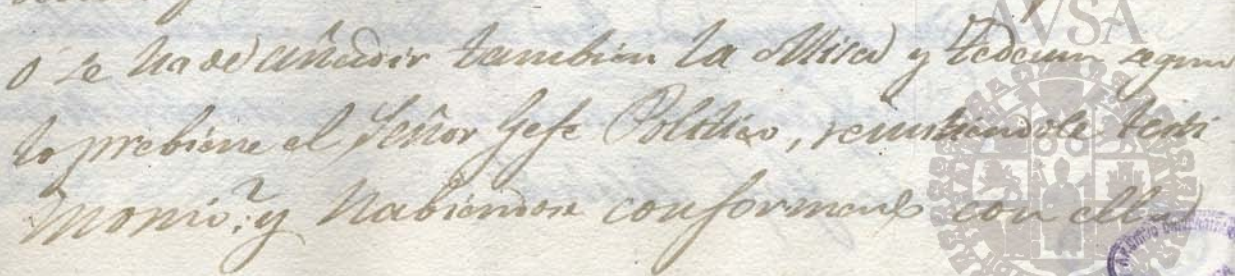 AVSA
o se ha de añadir tambien la Misa y tedeum segun
lo prebiene el Señor Gefe Politico, remitiendole testi
monio; y habiendose conformado con ella